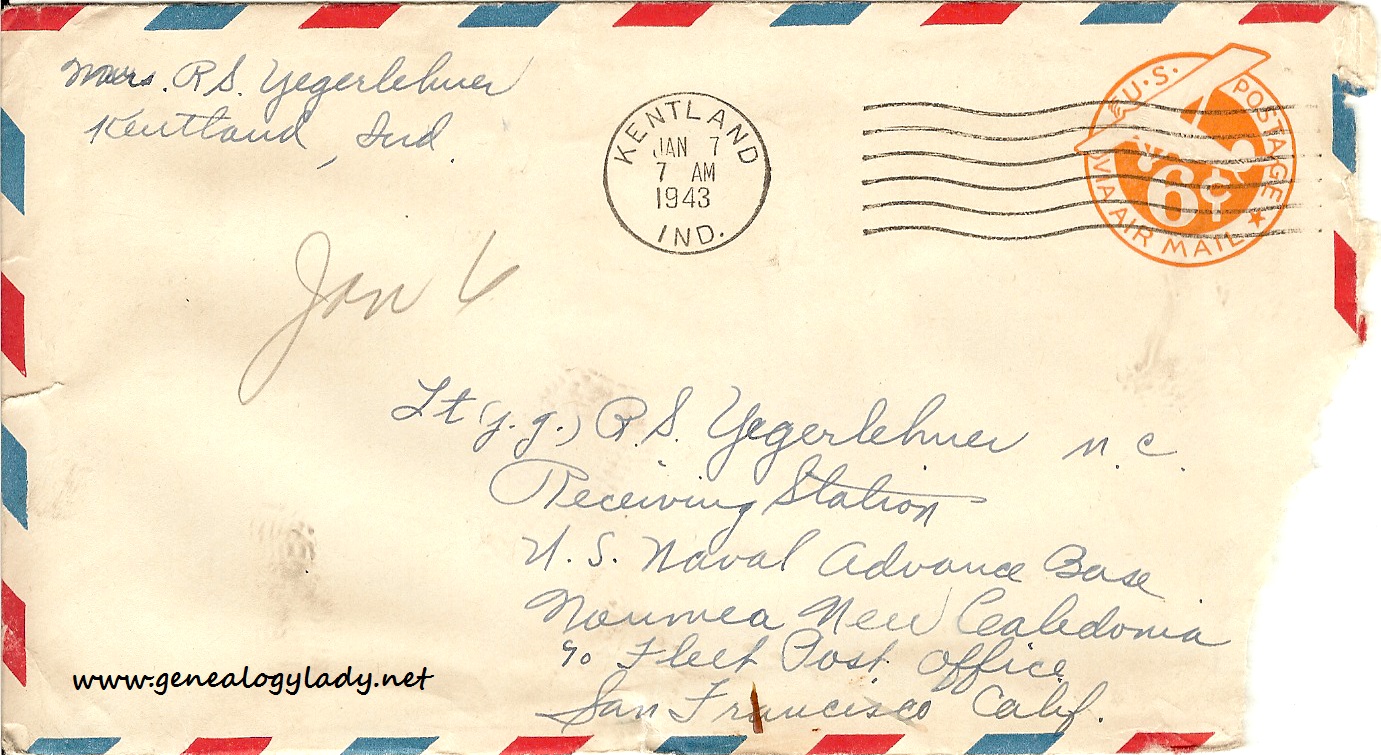 Mrs. R.S. Yegerlehner
Kentland, Ind.
KENTLAND
JAN 7
7 AM
1943
IND.
U.S. POSTAGE
6¢
VIA AIR MAIL
Jan 6
Lt (j.g.) R.S. Yegerlehner M.C.
Receiving Station
U.S. Naval Advance Base
Noumea New Caledonia
c/o Fleet Post Office
San Francisco Calif.
www.genealogylady.net